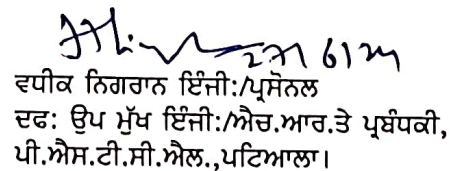 ਵਧੀਕ ਨਿਗਰਾਨ ਇੰਜੀ:/ਪ੍ਰਸੋਨਲ
ਦਫ: ਉਪ ਮੁੱਖ ਇੰਜੀ:/ਐਚ.ਆਰ.ਤੇ ਪ੍ਰਬੰਧਕੀ,
ਪੀ.ਐਸ.ਟੀ.ਸੀ.ਐਲ.,ਪਟਿਆਲਾ।